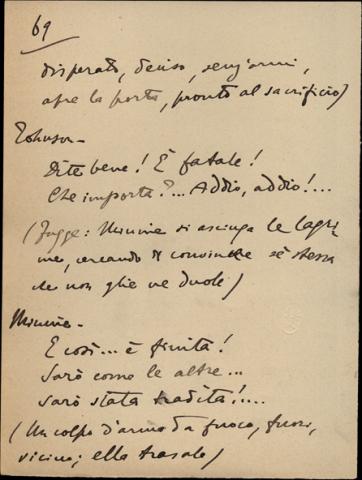 69
disperato, deciso, senz'armi,
apre la porta, pronto al sacrificio)
Johnson -
Dite bene! È fatale!
Che importa?... Addio, addio!...
(Fugge: Minnie si asciuga le lagri
me, cercando di convincere sè stessa
che non glie ne duole)
Minnie -
E così... è finita!
Sarò come le altre...
Sarò stata tradita!....
(Un colpo d'arma da fuoco, fuori,
vicino; ella trasale)